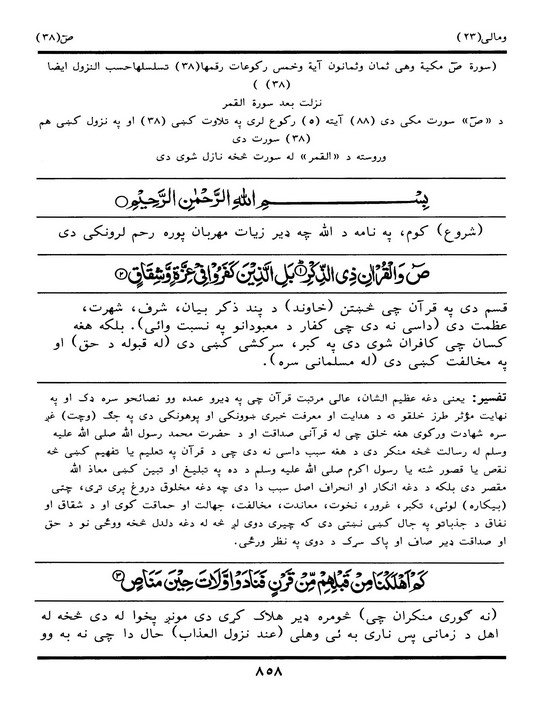 ومالی(۲۳) صٓ(۳۸)
(سورة صٓ مکیة وهی ثمان وثمانون آیة وخمس رکوعات رقمها(۳۸) تسلسلهاحسب النزول ایضا
(۳۸) )
نزلت بعد سورة القمر
د «صٓ» سورت مکی دی (۸۸) آیته (۵) رکوع لری په تلاوت کښی (۳۸) او په نزول کښی هم
(۳۸) سورت دی
وروسته د «القمر» له سورت څخه نازل شوی دی
بِسْمِ اللهِ الرَّحْمٰنِ الرَّحِيْمِ ○
(شروع) کوم، په نامه د الله چه ډیر زیات مهربان پوره رحم لرونکی دی
صٓ وَالْقُرْاٰنِ ذِی الذِّكْرِ ۱ بَلِ الَّذِيْنَ كَفَرُوْا فِیْ عِزَّةٍ وَّشِقَاقٍ ۲
قسم دی په قرآن چی څښتن (خاوند) د پند ذکر بیان، شرف، شهرت،
عظمت دی (داسی نه دی چی کفار د معبودانو په نسبت وائی). بلکه هغه
کسان چی کافران شوی دی په کبر، سرکشی کښی دی (له قبوله د حق) او
په مخالفت کښی دی (له مسلمانی سره).
تفسیر: یعنی دغه عظیم الشان، عالی مرتبت قرآن چی په ډیرو عمده وو نصائحو سره ډک او په
نهایت مؤثر طرز خلقو ته د هدایت او معرفت خبری ښوونکی او پوهونکی دی په جګ (وچت) غږ
سره شهادت ورکوی هغه خلق چی له قرآنی صداقت او د حضرت محمد رسول الله صلی الله علیه
وسلم له رسالت څخه منکر دی د هغه سبب داسی نه دی چی د قرآن په تعلیم یا تفهیم کښی څه
نقص یا قصور شته یا رسول اکرم صلی الله علیه وسلم د ده په تبلیغ او تبین کښی معاذ الله
مقصر دی بلکه د دغه انکار او انحراف اصل سبب دا دی چه دغه مخلوق دروغ پری تړی، چتی
(بیکاره) لوئی، تکبر، غرور، نخوت، معاندت، مخالفت، جهالت او حماقت کوی او د شقاق او
نفاق د جذباتو په جال کښی نښتی دی که چیری دوی لږ څه له دغه دلدل څخه ووځی نو د حق
او صداقت ډیر صاف او پاک سرک د دوی په نظر ورځی.
كَمْ اَهْلَكْنَا مِنْ قَبْلِهِمْ مِّنْ قَرْنٍ فَنَادَوْا وَّلَاتَ حِيْنَ مَنَاصٍ ۳
(نه ګوری منکران چی) څومره ډیر هلاک کړی دی مونږ پخوا له دی څخه له
اهل د زمانی پس ناری به ئی وهلی (عند نزول العذاب) حال دا چی نه به وو
۸۵۸